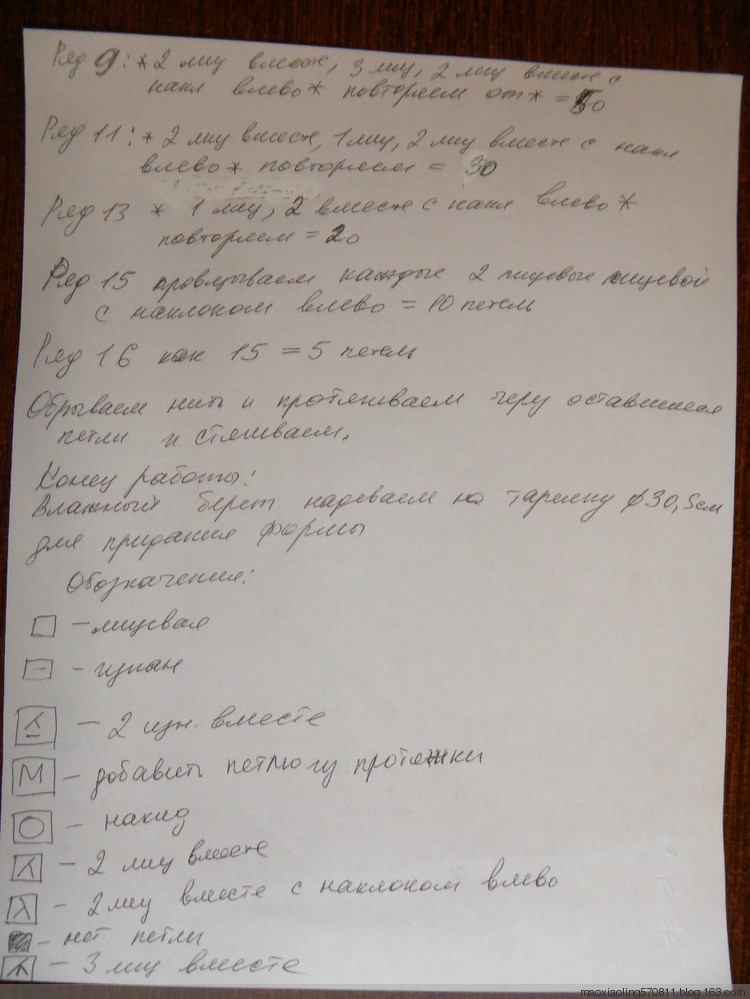 Ряд 9: * 2 лиц вместе, 3 лиц, 2 лиц вместе с
накл влево * повторяем от * = 50
Ряд 11: * 2 лиц вместе, 1 лиц, 2 лиц вместе с накл
влево * повторяем = 30
Ряд 13 * 1 лиц, 2 вместе с накл влево *
повторяем = 20
Ряд 15 провязываем каждые 2 лицевые лицевой
с наклоном влево = 10 петель
Ряд 16 как 15 = 5 петель
Обрываем нить и протягиваем через оставшиеся
петли и стягиваем.
Конец работы!
Влажный берет надеваем на тарелку ϕ30,5см
для придания формы
Обозначения:
– лицевая
– изнан
– 2 изн. вместе
М – добавить петлю из протяжки
– накид
– 2 лиц вместе
– 2 лиц вместе с наклоном влево
– нет петли
– 3 лиц вместе
maoxiaoling570811.blog.163.com